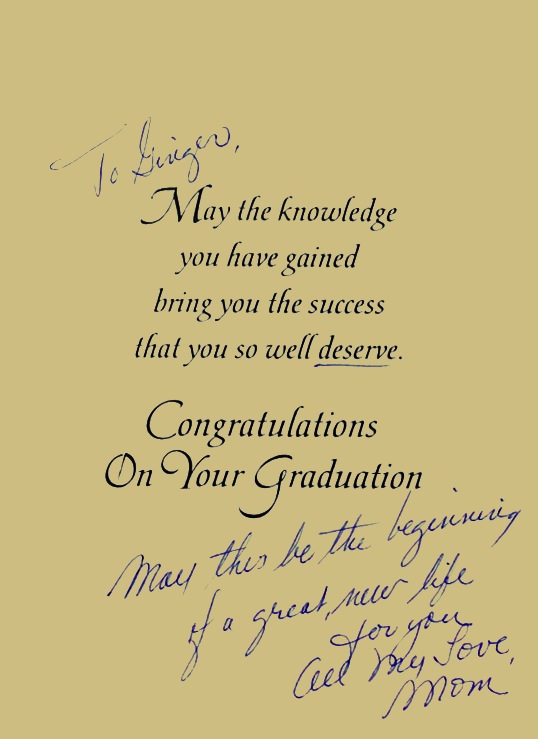 To Ginger,
May the knowledge
you have gained
bring you the success
that you so well deserve.
Congratulations
On Your Graduation
May this be the beginning
of a great, new life
for you
All My Love,
Mom